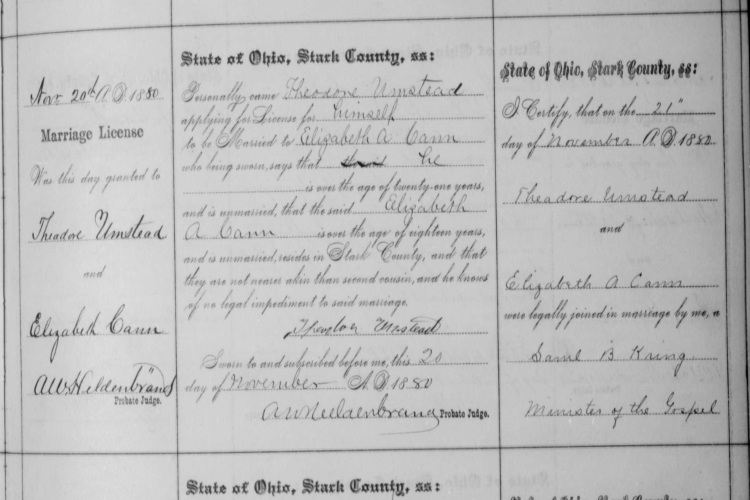 Nov 20th A D 1880
Marriage License
Was this day granted to
Theadoe Umstead
and
Elizabeth Cann
A W Heldenbrand
Probate Judge.
State of Ohio, Stark County, ss:
Personally came Theodore Umstead
applying for License for himself
to be Married to Elizabeth A Cann
who being sworn, says that he
is over the age of twenty-one years,
and is unmarried, that the said Elizabeth
A Cann is over the age of eighteen years,
and is unmarried, resides in Stark County, and that
they are not nearer akin than second cousin, and he knows
of no legal impediment to said marriage.
Umstead
Sworn to and subscribed before me, this 20
day of November A.D. 1880
A W Heldenbrand Probate Judge.
State of Ohio, Stark County, ss:
I Certify, that on the 21"
day of November A.D. 1880
Theadore Umstead
and
Elizabeth A Cann
were legally joined in marriage by me, a
Saml B Kring
Minister of the Gospel
State of Ohio, Stark County, ss: